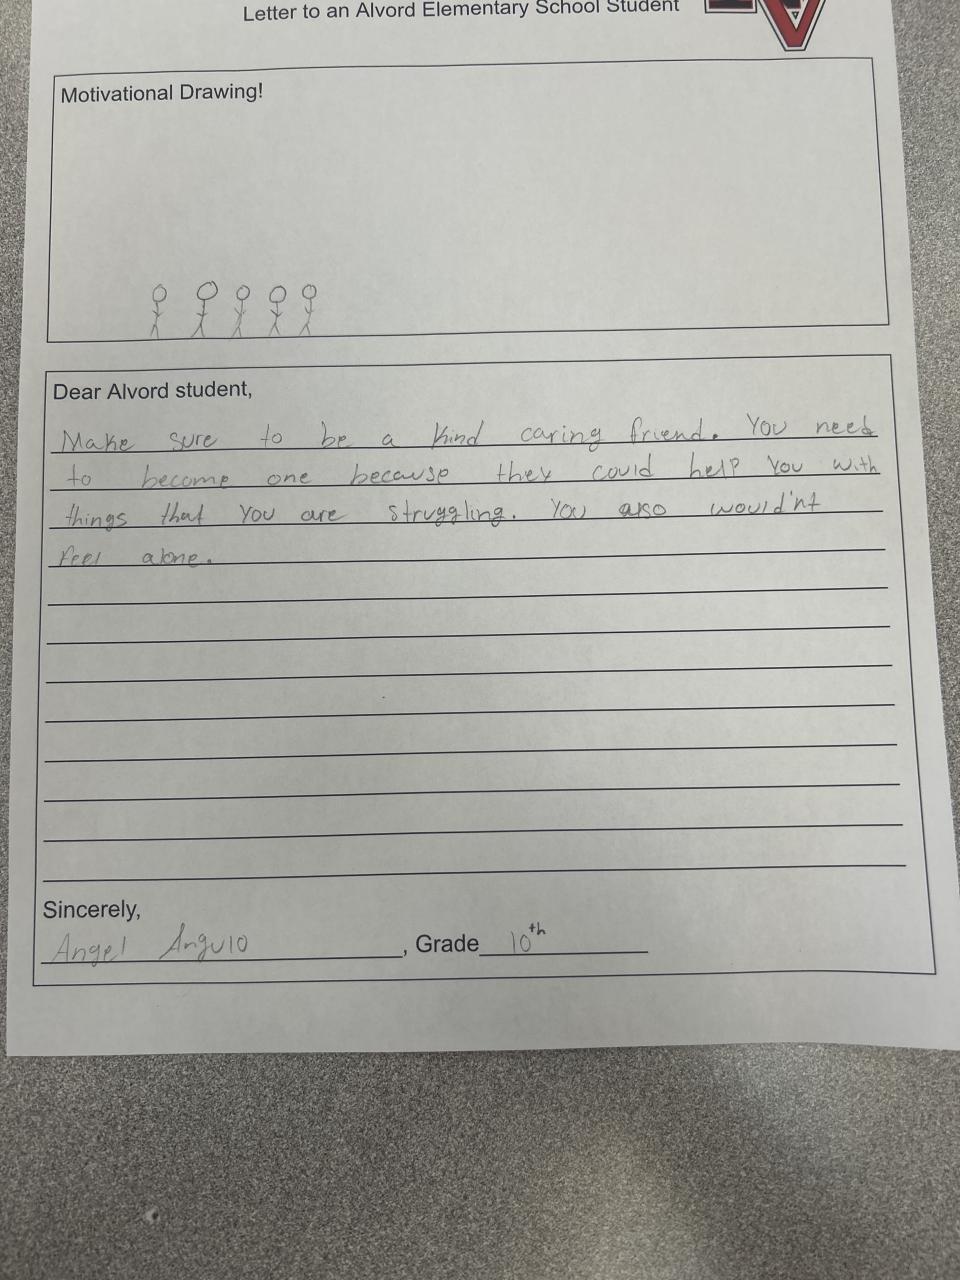 Letter to an Alvord Elementary School Student
Motivational Drawing!
Dear Alvord student,
Make sure to be a kind caring friend. You need
to become one because they could help you with
things that you are struggling. You also would'nt
feel alone.
Sincerely,
Angel Angulo, Grade 10th